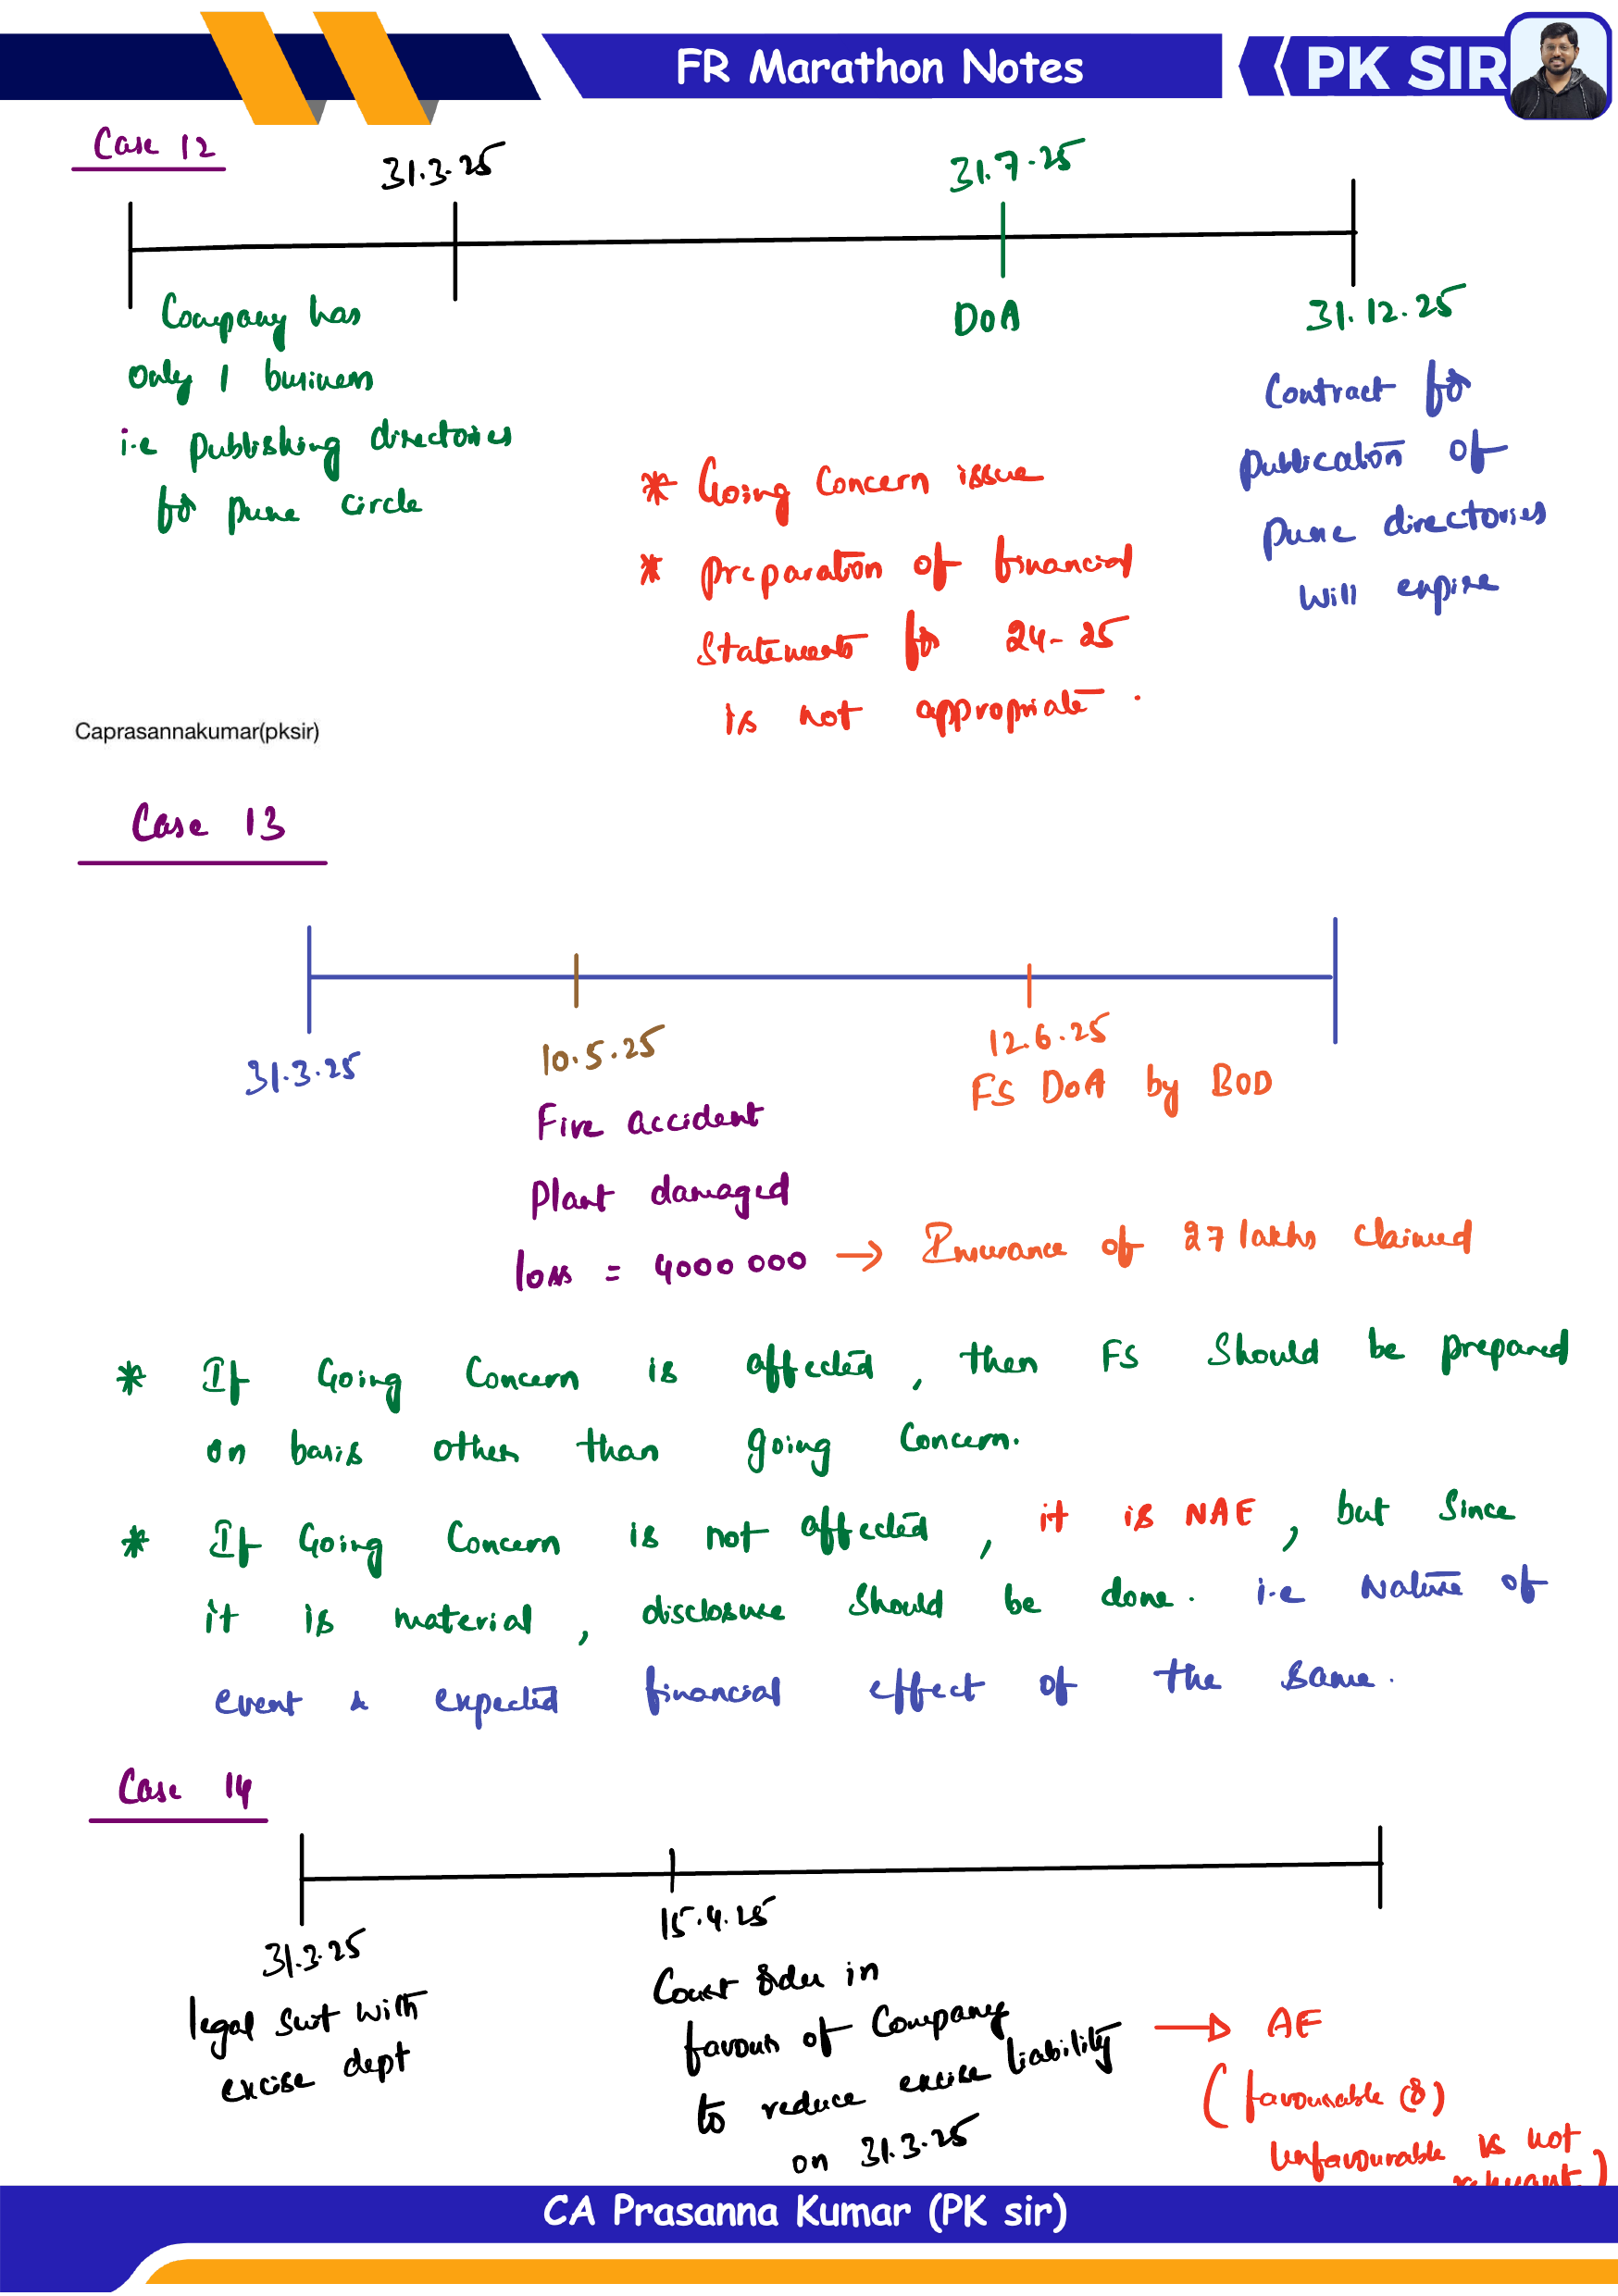 FR Marathon Notes
PK SIR
Case 12
31.3.25
31.7.25
DOA
31.12.25
Company has
only 1 business
i.e publishing directories
for pune circle
Contract for
publication of
pune directories
will expire
* Going Concern issue
* preparation of financial
Statements for 24-25
is not appropriate.
Caprasannakumar(pksir)
Case 13
31.3.25
10.5.25
12.6.25
FS DOA by BOD
Fire accident
Plant damaged
loss = 4000 000 → Insurance of 27 lakhs claimed
* If Going Concern is affected, then FS should be prepared
on basis other than going Concern.
* If Going Concern is not affected, it is NAE, but since
it is material, disclosure should be done. i.e Nature of
event & expected financial effect of the same.
Case 14
31.3.25
legal suit with
excise dept
15.4.25
Court order in
favour of Company
to reduce excise liability
on 31.3.25
→ AE
(favourable (or)
unfavourable is not
relevant)
CA Prasanna Kumar (PK sir)